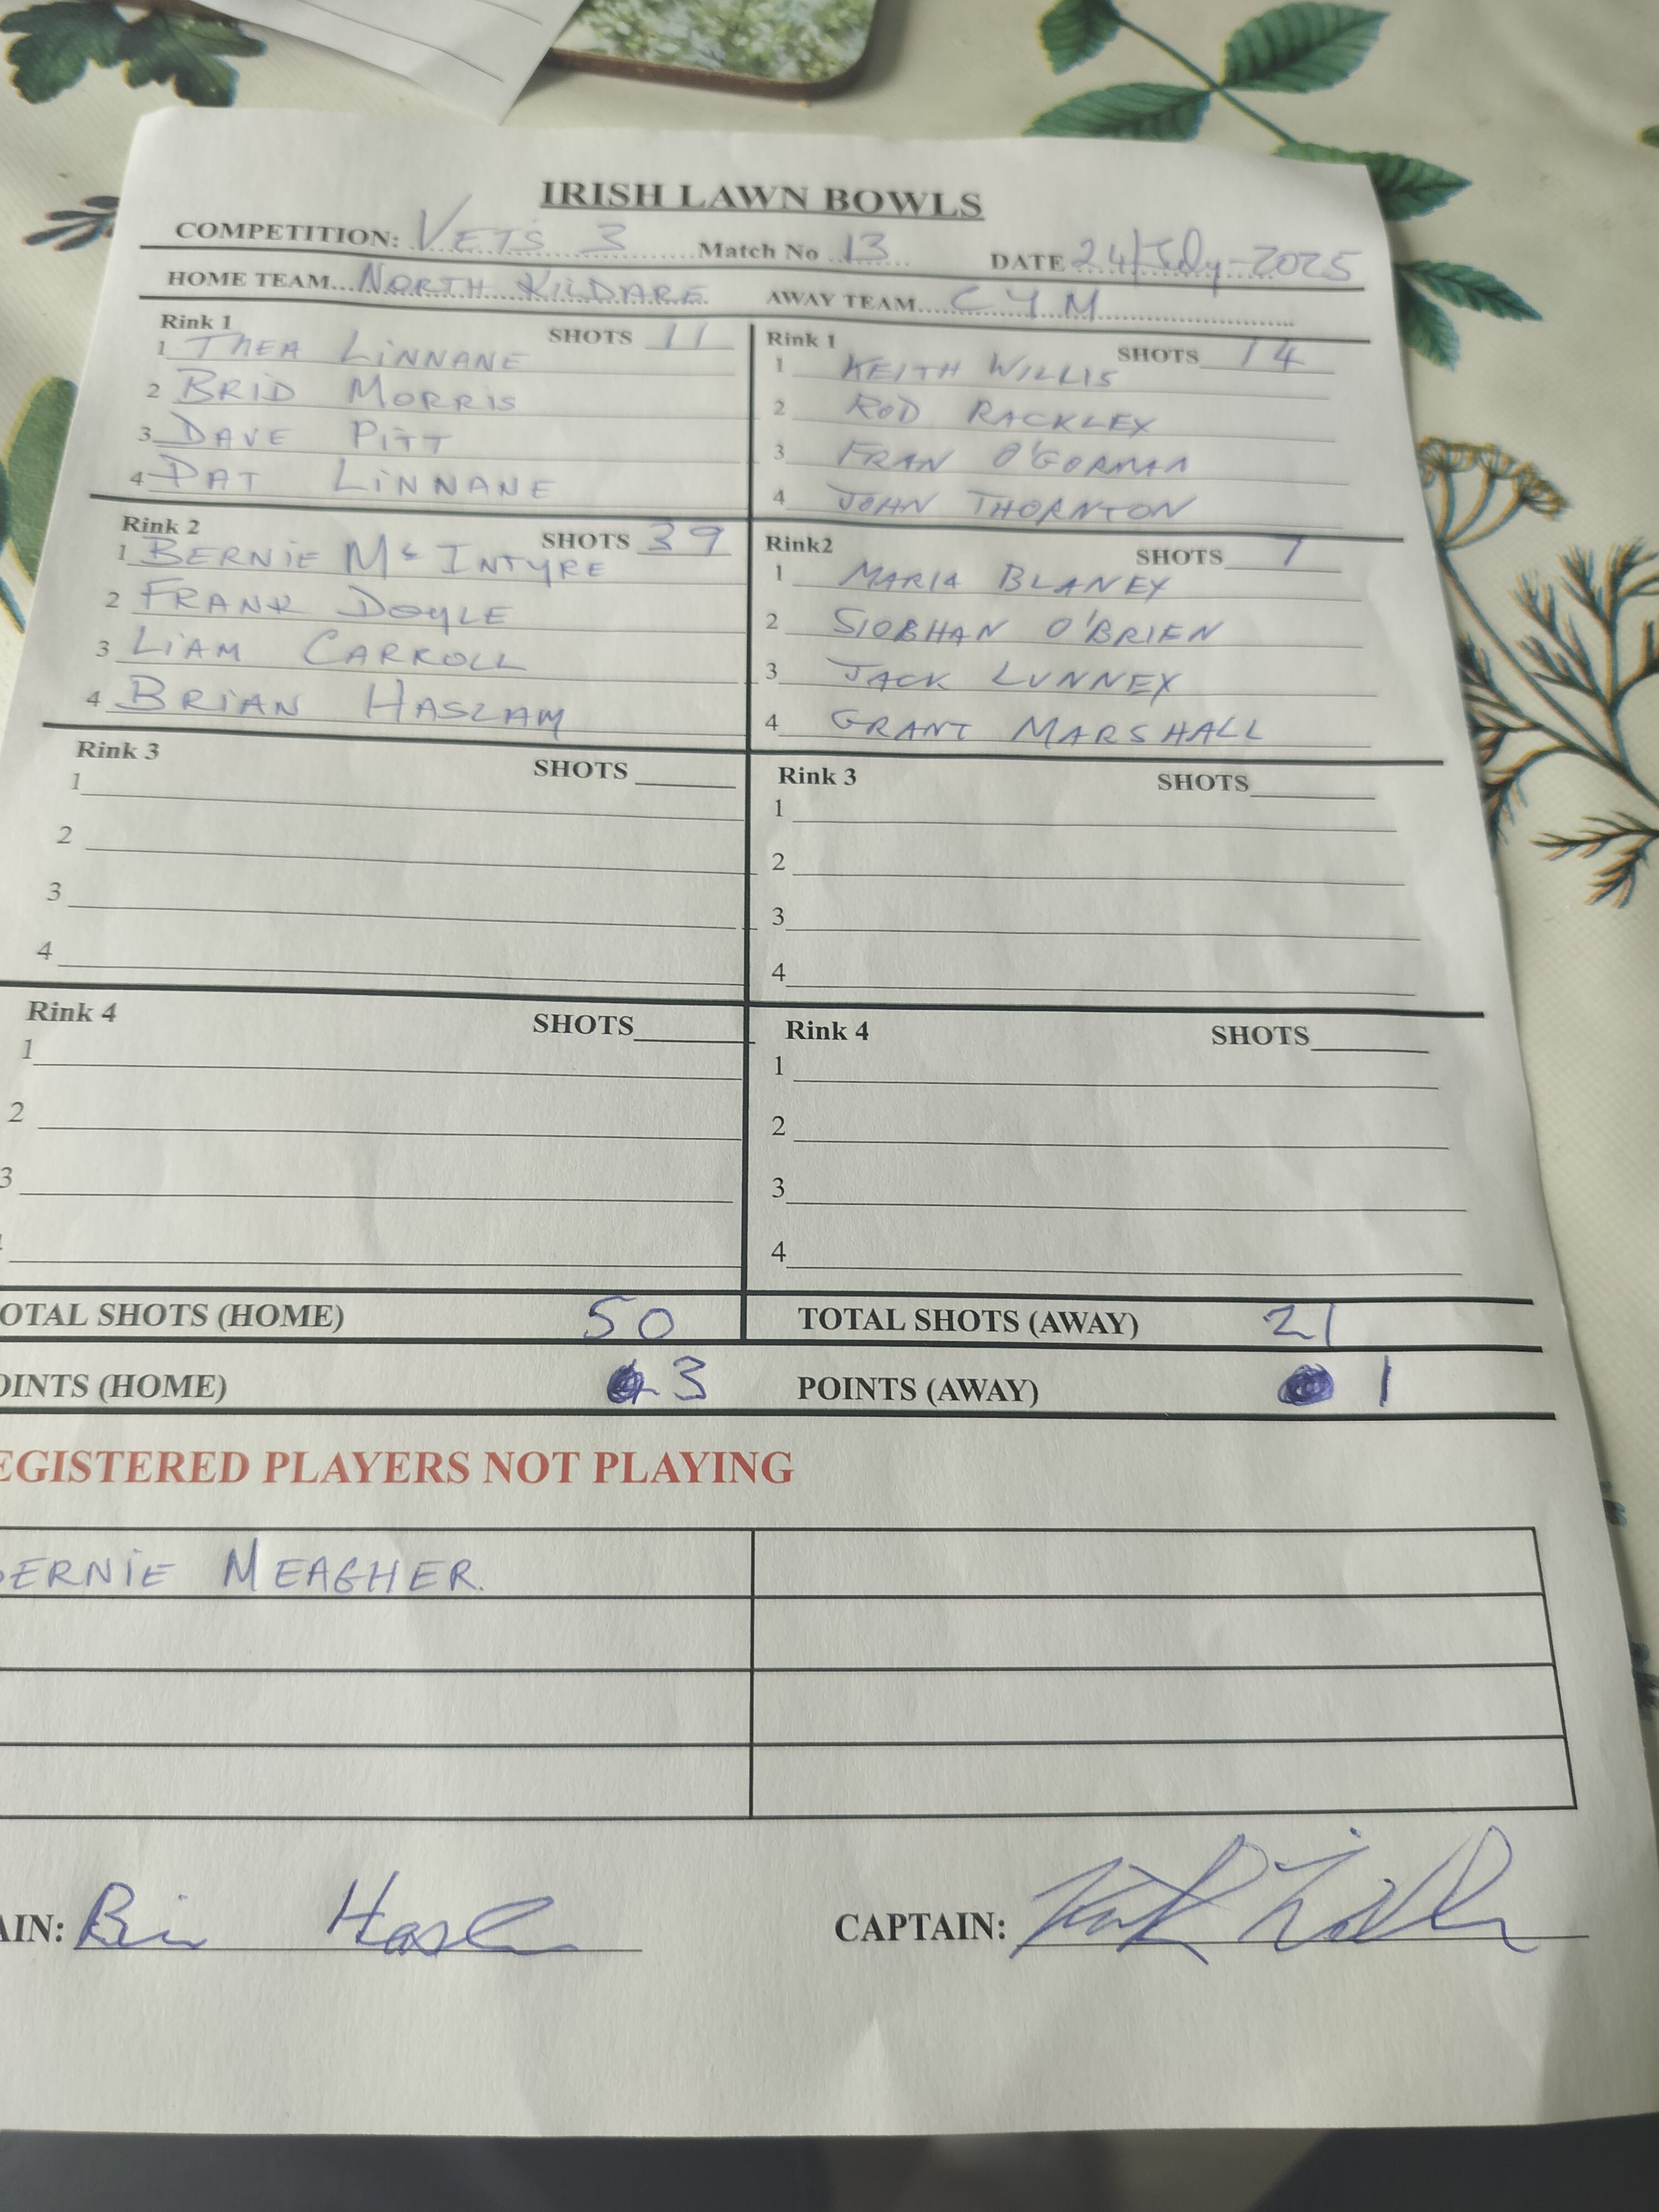 IRISH LAWN BOWLS
COMPETITION: VETS 3 Match No 13 DATE 24/July-2025
HOME TEAM NORTH KILDARE AWAY TEAM C Y M
Rink 1 SHOTS 11
1 THEA LINNANE
2 BRID MORRIS
3 DAVE PITT
4 PAT LINNANE
Rink 1 SHOTS 14
1 KEITH WILLIS
2 ROD RACKLEY
3 FRAN O'GORMAN
4 JOHN THORNTON
Rink 2 SHOTS 39
1 BERNIE Mc INTYRE
2 FRANK DOYLE
3 LIAM CARROLL
4 BRIAN HASLAM
Rink2 SHOTS 7
1 MARIA BLANEY
2 SIOBHAN O'BRIEN
3 JACK LUNNEY
4 GRANT MARSHALL
Rink 3 SHOTS
1
2
3
4
Rink 3 SHOTS
1
2
3
4
Rink 4 SHOTS
1
2
3
Rink 4 SHOTS
1
2
3
4
OTAL SHOTS (HOME) 50 TOTAL SHOTS (AWAY) 21
OINTS (HOME) 3 POINTS (AWAY) 1
EGISTERED PLAYERS NOT PLAYING
BERNIE MEAGHER.
AIN: CAPTAIN: